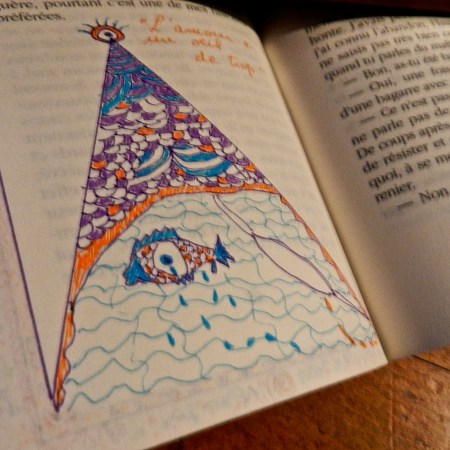 guère, pourtant c'est une de mes
préférées.
"L'amour a
un œil
de trop"
honte. J'avais
j'ai connu l'abandon,
ne saisis pas très bien
quand tu parles du
— Bon, as-tu été
— Oui, une
d'une bagarre avec
— Ce n'est pas
ne parle pas de
De coups après
de résister et
quoi, à se
renier.
— Non